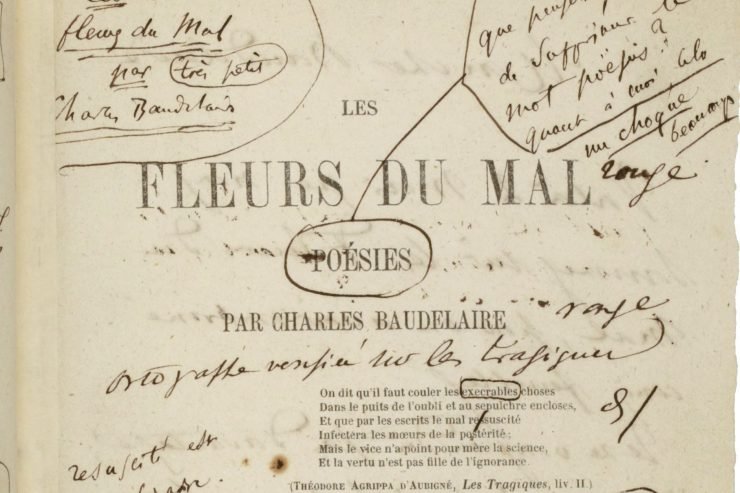 les
fleurs du Mal
par très petit
Charles Baudelaire
que pensez
de supprimer le
mot poësies ?
quant à moi cela
me choque
beaucoup
LES
FLEURS DU MAL
rouge.
POÉSIES
rouge
PAR CHARLES BAUDELAIRE
ortographe vérifiée sur les Tragiques
On dit qu'il faut couler les execrables choses
Dans le puits de l'oubli et au sepulchre encloses,
Et que par les escrits le mal resuscité
Infectera les mœurs de la postérité ;
Mais le vice n'a point pour mère la science,
Et la vertu n'est pas fille de l'ignorance.
(THÉODORE AGRIPPA D'AUBIGNÉ, Les Tragiques, liv. II.)
resuscité est